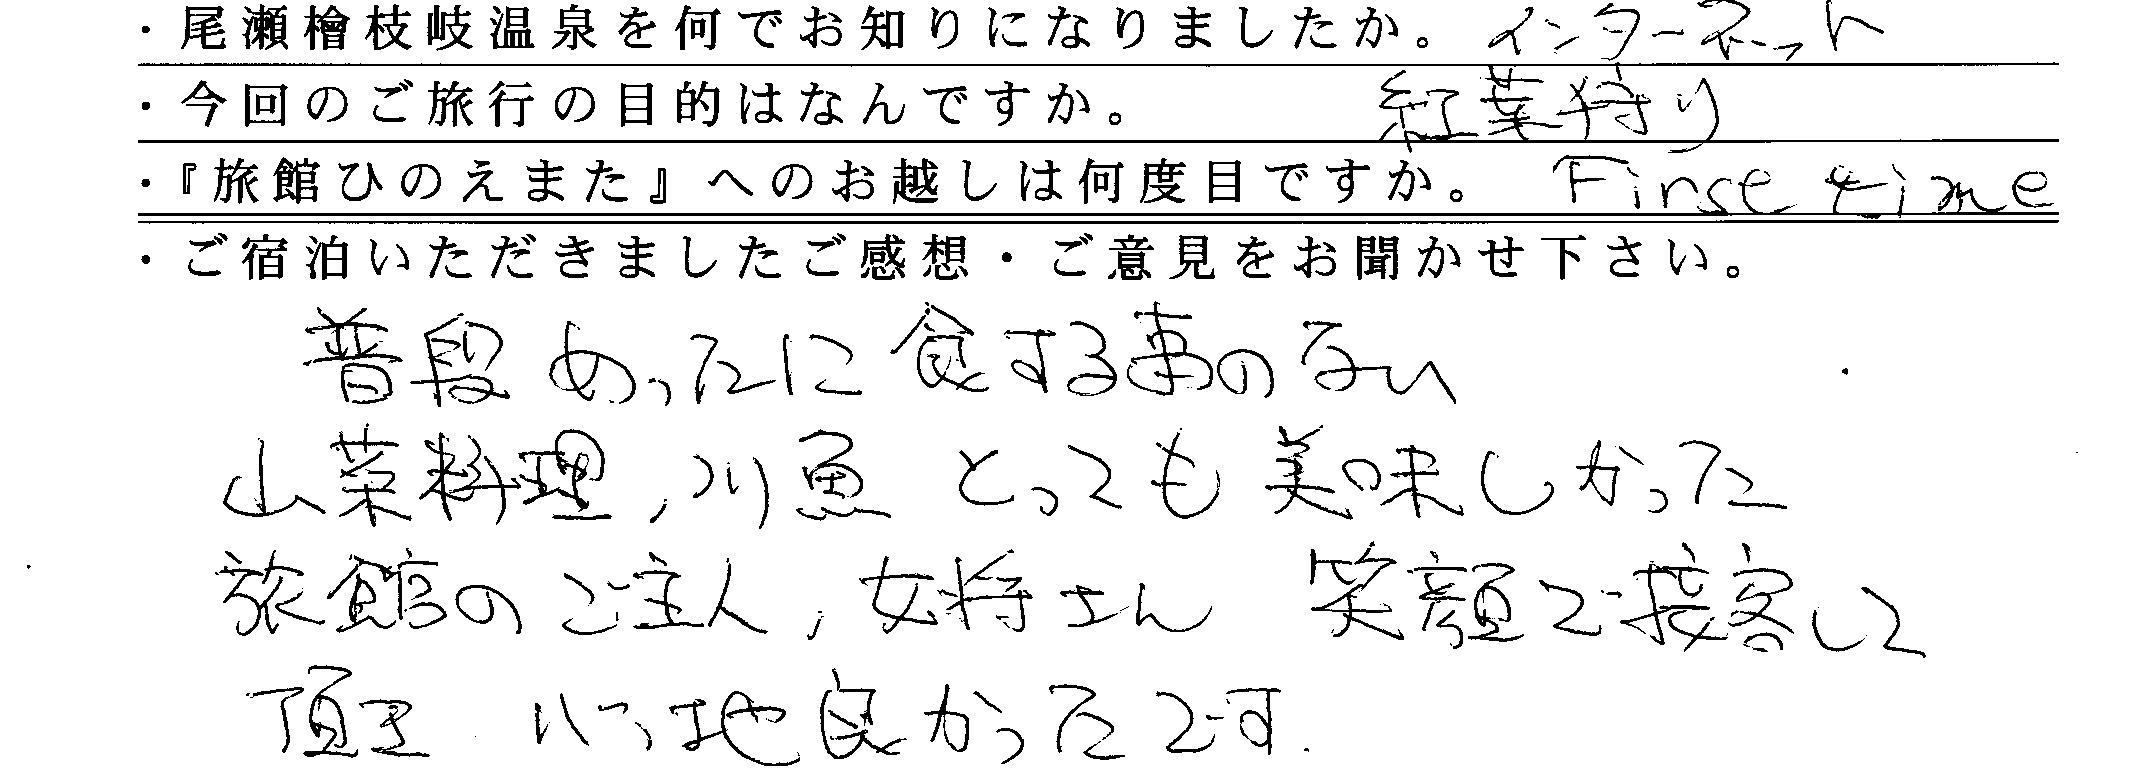 ・尾瀬檜枝岐温泉を何でお知りになりましたか。 インターネット
・今回のご旅行の目的はなんですか。 紅葉狩り
・『旅館ひのえまた』へのお越しは何度目ですか。 First time
・ご宿泊いただきましたご感想・ご意見をお聞かせ下さい。
普段めったに食する事のない
山菜料理,川魚 とっても美味しかった
旅館のご主人,女将さん 笑顔で接客して
頂き 心地良かったです.